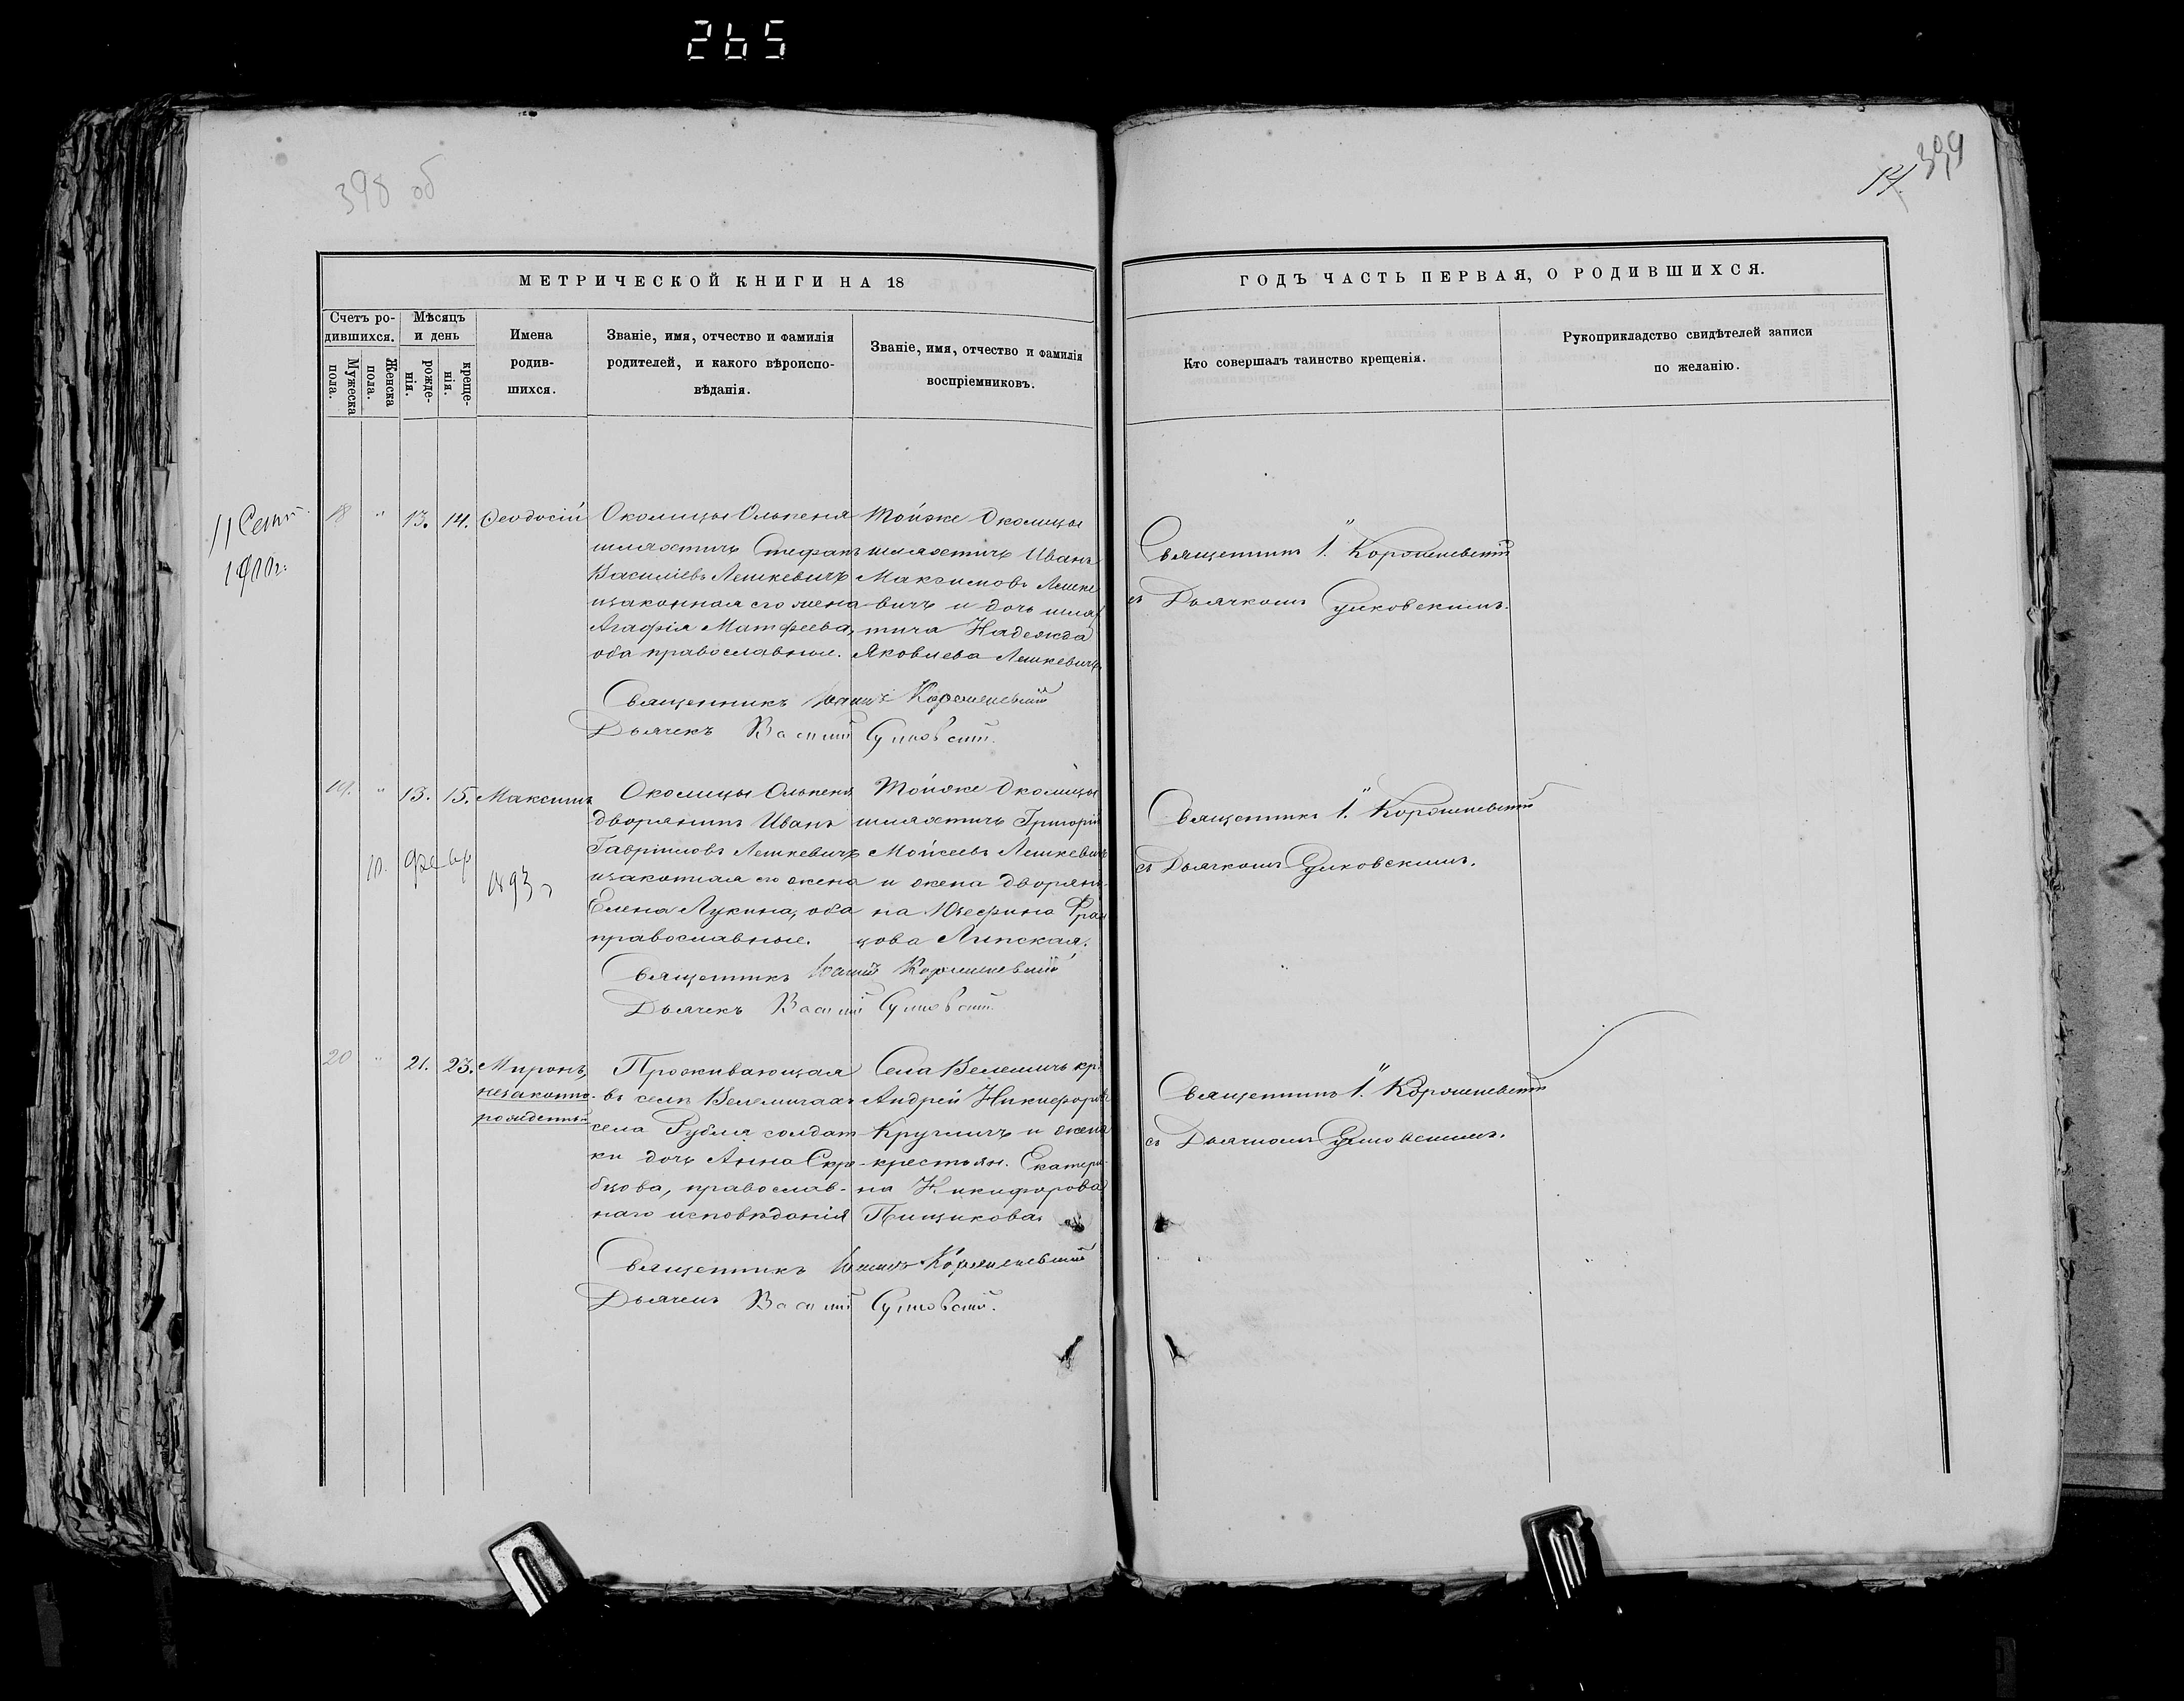 265
398 об
14. 399
МЕТРИЧЕСКОЙ КНИГИ НА 18
ГОДЪ ЧАСТЬ ПЕРВАЯ, О РОДИВШИХСЯ.
Счетъ ро-
дившихся.
Мужеска
пола.
Женска
пола.
Мѣсяцъ
и день
рожде-
нія.
креще-
нія.
Имена
родив-
шихся.
Званіе, имя, отчество и фамилія
родителей, и какого вѣроиспо-
вѣданія.
Званіе, имя, отчество и фамилія
воспріемниковъ.
Кто совершалъ таинство крещенія.
Рукоприкладство свидѣтелей записи
по желанію.
11 Сент
1900 г.
18 " 13. 14. Ѳеодосій
Околицы Ольпеня
шляхтичъ Стефанъ
Василіевъ Лешкевичъ
изаконная его жена
Агафія Матфеева,
оба православные.
Тойже Околицы
шляхтичъ Иванъ
Максимовъ Лешке
вичъ и дочь шлях
тича Надежда
Яковлева Лешкевичъ.
Священникъ І. Корженевскій
съ Дьячкомъ Сулковскимъ.
Священникъ Іоаннъ Корженевскій
Дьячекъ Василій Сулковскій.
19. " 13. 15. Максимъ
10. февр 1893 г
Околицы Ольпень
дворянинъ Иванъ
Гавріиловъ Лешкевичъ
изаконная его жена
Елена Лукина, оба
православные.
Тойже Околицы
шляхтичъ Григорій
Мойсеевъ Лешкевичъ
и жена дворяни-
на Юзефина Фран
цова Липская.
Священникъ І. Корженевскій
съ Дьячкомъ Сулковскимъ.
Священникъ Іоаннъ Корженевскій
Дьячекъ Василій Сулковскій.
20 " 21. 23. Миронъ,
незаконно-
рожденный
Проживающая
въ селѣ Велемичахъ
села Рубля солдат
ки дочь Анна Скро-
бцова, православ-
наго исповѣданія
Села Велемичь кр.
Андрей Никифоровъ
Круглич и жена
крестьян. Екатери-
на Никифорова
Пищикова
Священникъ І. Корженевскій
съ Дьячкомъ Сулковскимъ.
Священникъ Іоаннъ Корженевскій
Дьячекъ Василій Сулковскій.